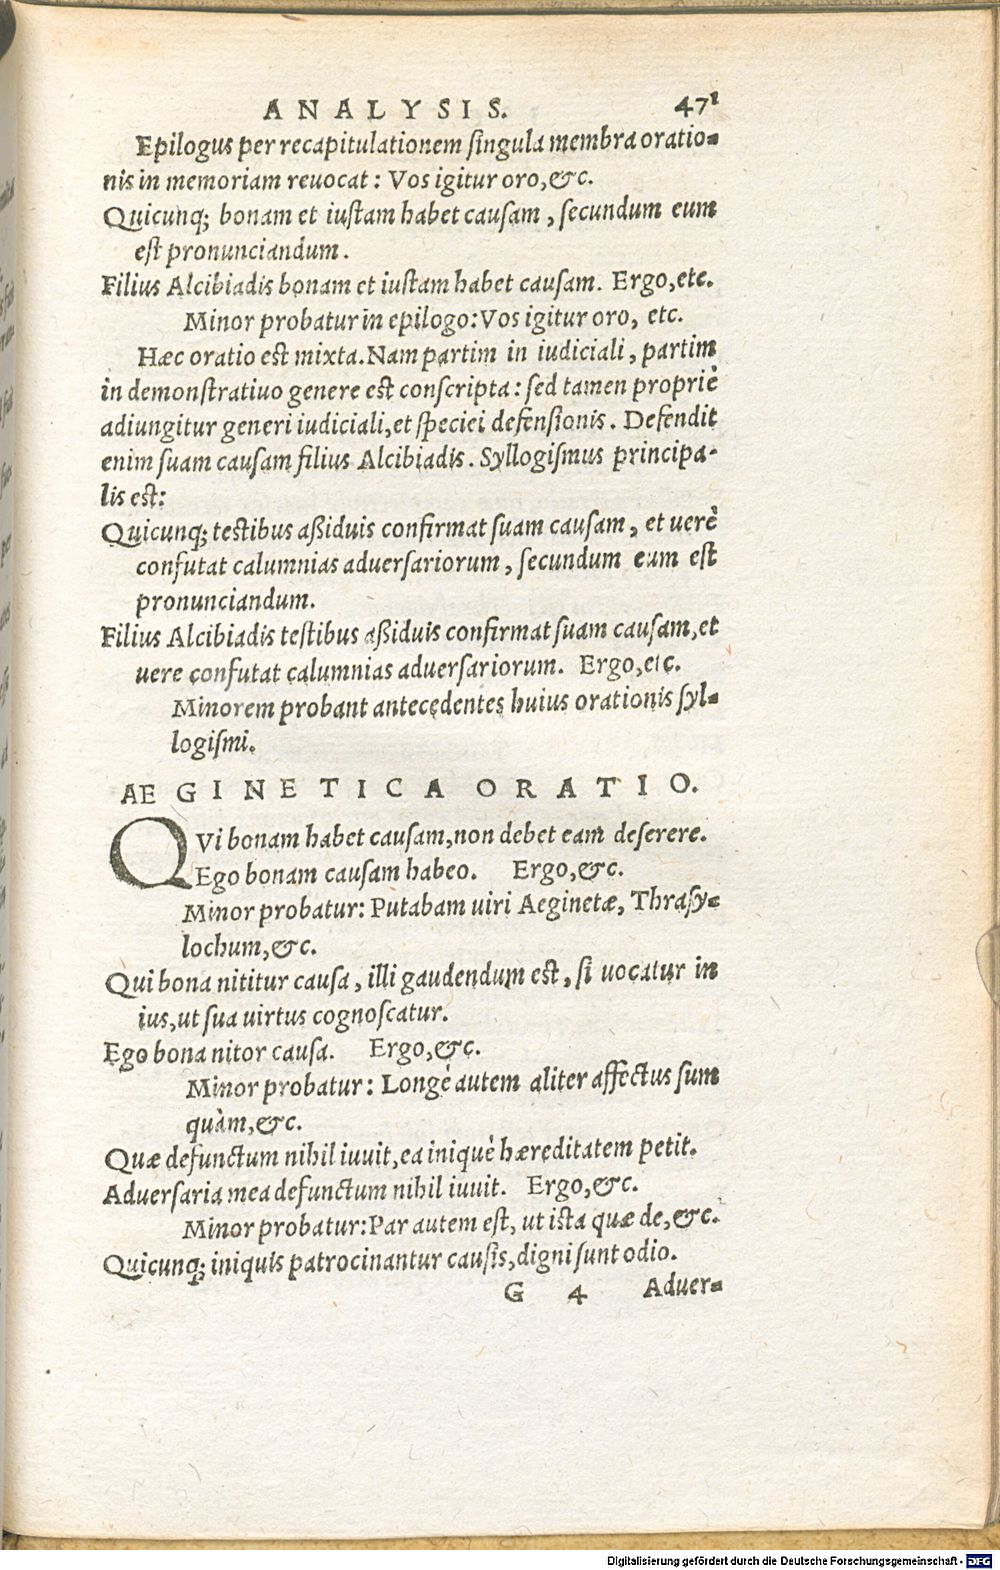 ANALYSIS. 471
Epilogus per recapitulationem singula membra oratio-
nis in memoriam reuocat: Vos igitur oro, &c.
Quicunq; bonam et iustam habet causam, secundum eum
est pronunciandum.
Filius Alcibiadis bonam et iustam habet causam. Ergo, etc.
Minor probatur in epilogo: Vos igitur oro, etc.
Hæc oratio est mixta. Nam partim in iudiciali, partim
in demonstratiuo genere est conscripta: sed tamen propriè
adiungitur generi iudiciali, et speciei defensionis. Defendit
enim suam causam filius Alcibiadis. Syllogismus principa-
lis est:
Quicunq; testibus aßiduis confirmat suam causam, et uerè
confutat calumnias aduersariorum, secundum eum est
pronunciandum.
Filius Alcibiadis testibus aßiduis confirmat suam causam, et
uere confutat calumnias aduersariorum. Ergo, etc.
Minorem probant antecedentes huius orationis syl-
logismi.
AEGINETICA ORATIO.
QVi bonam habet causam, non debet eam deserere.
Ego bonam causam habeo. Ergo, &c.
Minor probatur: Putabam uiri Aeginetæ, Thrasy-
lochum, &c.
Qui bona nititur causa, illi gaudendum est, si uocatur in
ius, ut sua uirtus cognoscatur.
Ego bona nitor causa. Ergo, &c.
Minor probatur: Longè autem aliter affectus sum
quàm, &c.
Quæ defunctum nihil iuuit, ea iniquè hæreditatem petit.
Aduersaria mea defunctum nihil iuuit. Ergo, &c.
Minor probatur: Par autem est, ut ista quæ de, &c.
Quicunq; iniquis patrocinantur causis, digni sunt odio.
G 4 Aduer-
Digitalisierung gefördert durch die Deutsche Forschungsgemeinschaft - DFG